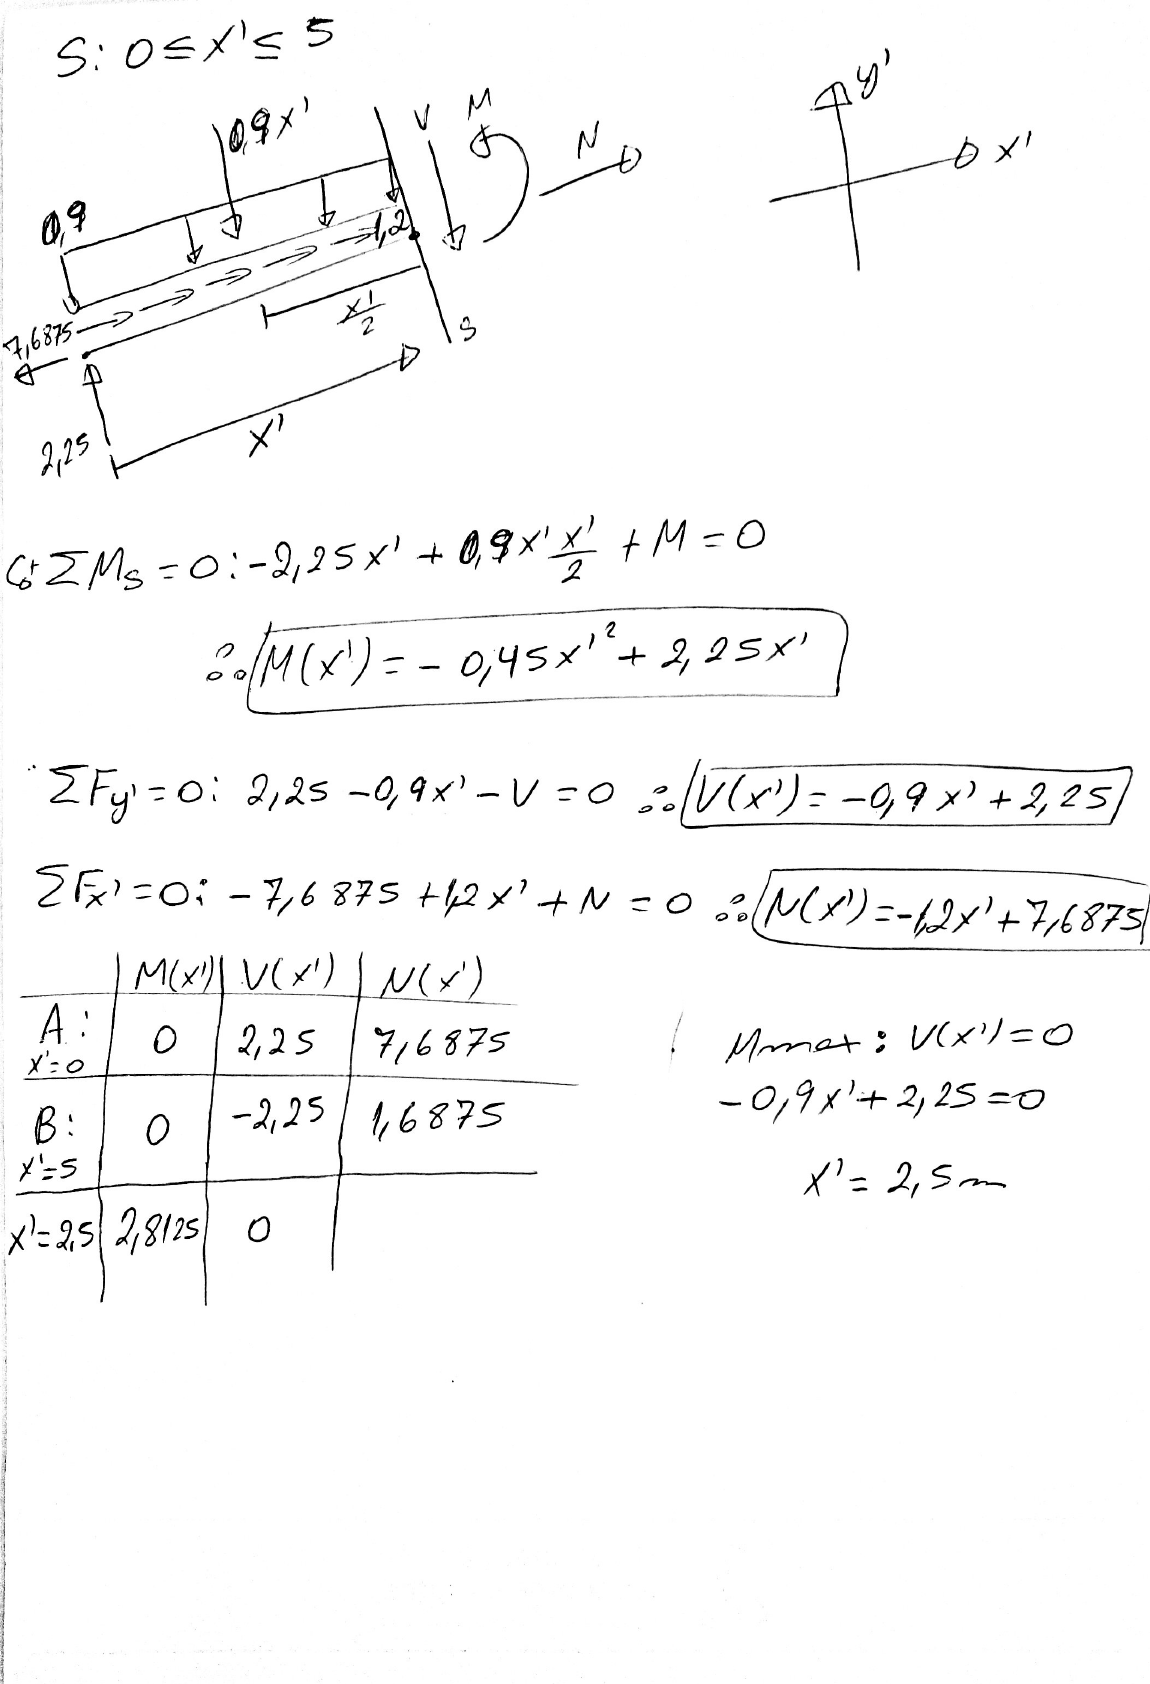 S: 0 ≤ x' ≤ 5
0,9x'
V
M
N
y'
x'
0,9
1,2
7,6875
x'/2
S
2,25
x'
↺+ ΣMs = 0: -2,25x' + 0,9x' x'/2 + M = 0
∴ M(x') = -0,45x'² + 2,25x'
ΣFy' = 0: 2,25 - 0,9x' - V = 0 ∴ V(x') = -0,9x' + 2,25
ΣFx' = 0: -7,6875 + 1,2x' + N = 0 ∴ N(x') = -1,2x' + 7,6875
M(x') V(x') N(x')
A: x'=0 0 2,25 7,6875
B: x'=5 0 -2,25 1,6875
x'=2,5 2,8125 0
Mmax: V(x') = 0
-0,9x' + 2,25 = 0
x' = 2,5m